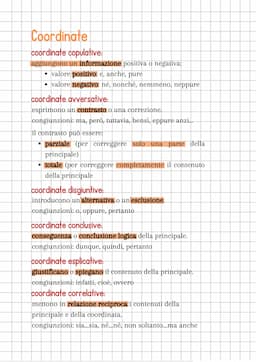 Coordinate
coordinate copulative:
aggiungono un informazione positiva o negativa;
• valore positivo: e, anche, pure
• valore negativo: né, nonché, nemmeno, neppure
coordinate avversative:
esprimono un contrasto o una correzione.
congiunzioni: ma, però, tuttavia, bensì, eppure anzi...
il contrasto può essere:
• parziale (per correggere solo una parte della
principale)
• totale (per correggere completamente il contenuto
della principale
coordinate disgiuntive:
introducono un'alternativa o un'esclusione.
congiunzioni: o, oppure, pertanto
coordinate conclusive:
conseguenza o conclusione logica della principale.
congiunzioni: dunque, quindi, pertanto
coordinate esplicative:
giustificano o spiegano il contenuto della principale.
congiunzioni: infatti, cioè, ovvero
coordinate correlative:
mettono in relazione reciproca i contenuti della
principale e della coordinata.
congiunzioni: sia...sia, né...né, non soltanto...ma anche